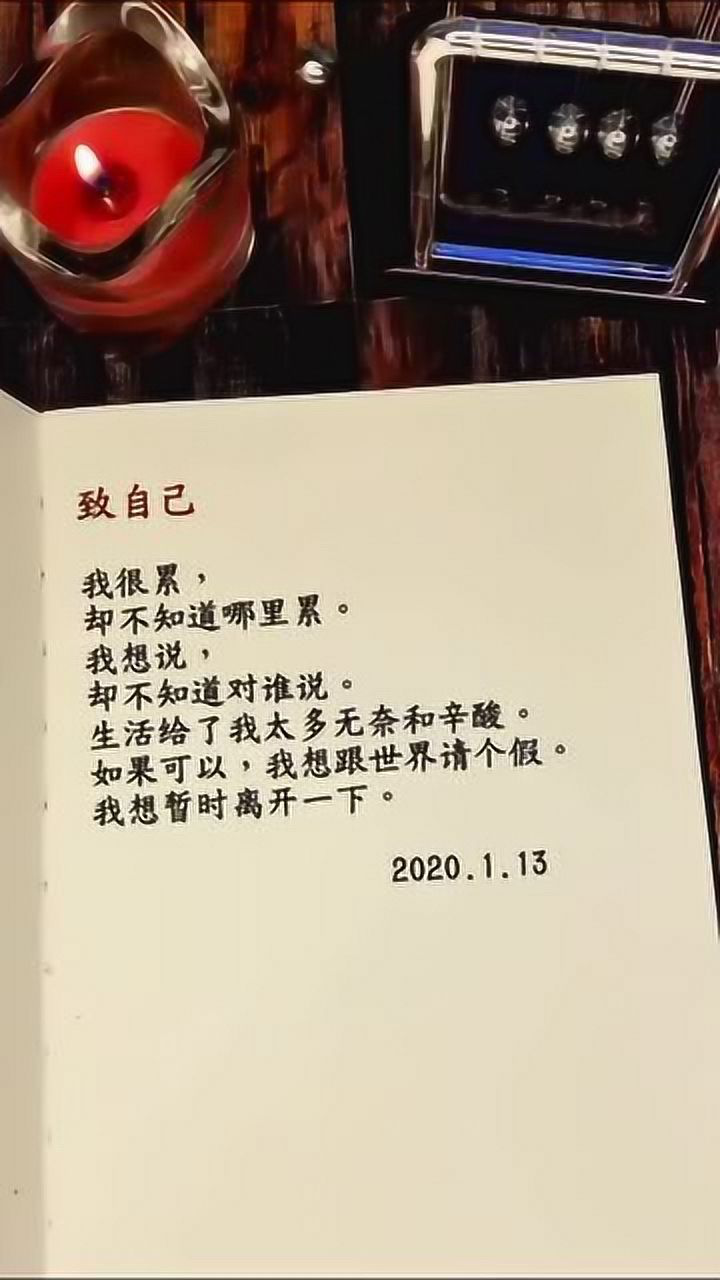 致自己
我很累，
却不知道哪里累。
我想说，
却不知道对谁说。
生活给了我太多无奈和辛酸。
如果可以，我想跟世界请个假。
我想暂时离开一下。
2020.1.13